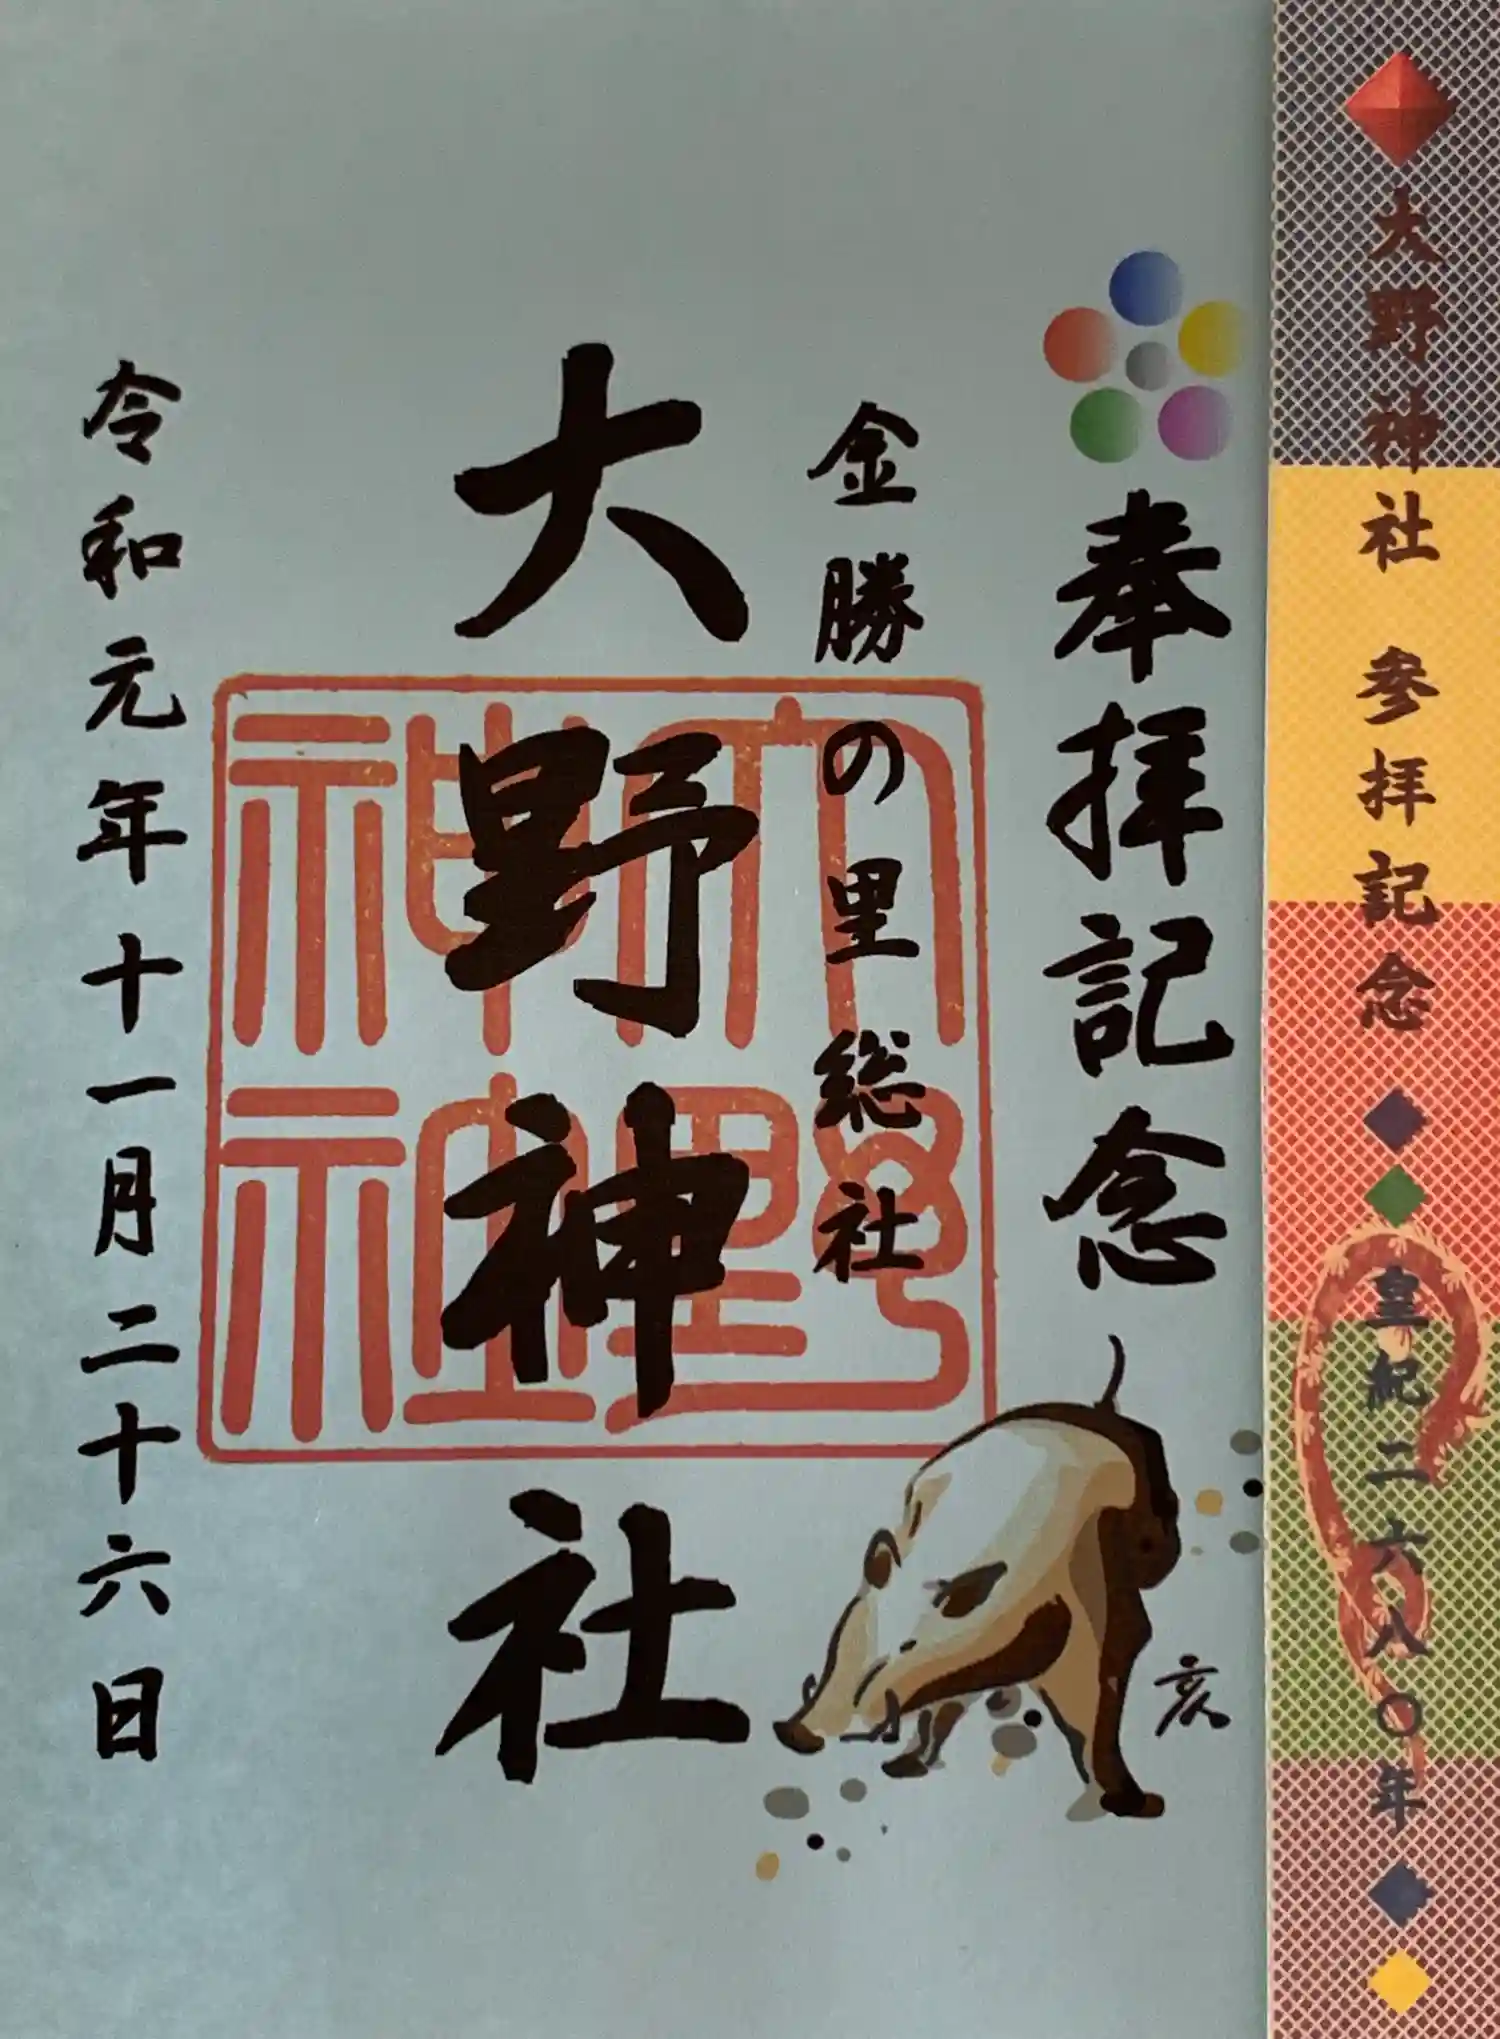 大野神社 参拝記念◆◆皇紀二六八〇年◆◆
奉拝記念
金勝の里総社
大野神社
令和元年十一月二十六日
亥
大野
神社